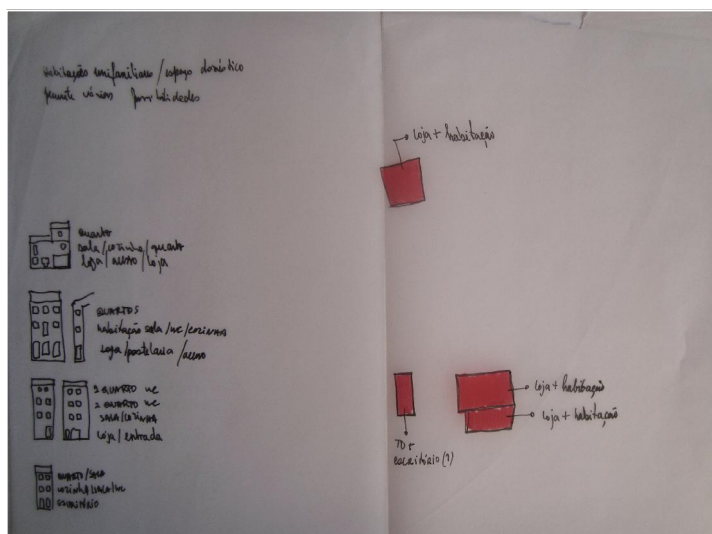 Habitação unifamiliar / espaço doméstico
permite várias possibilidades
quarto
sala/cozinha/quarto
loja/acesso/loja
QUARTOS
habitação sala/wc/cozinha
loja/pastelaria/acesso
1 QUARTO wc
2 QUARTO wc
SALA/COZINHA
loja/entrada
QUARTO/SALA
cozinha/sala/wc
loja + habitação
loja + habitação
loja + habitação
escritório (?)